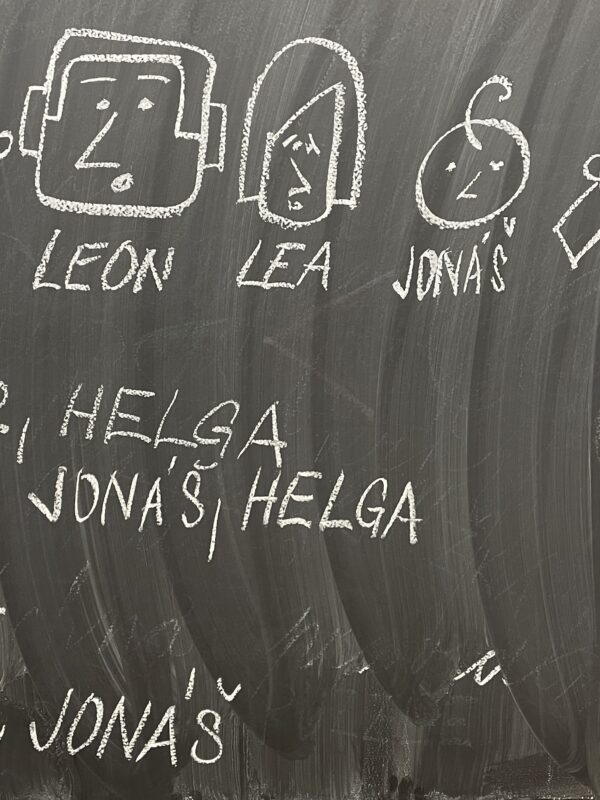 LEON LEA JONÁŠ
, HELGA
JONÁŠ, HELGA
JONÁŠ